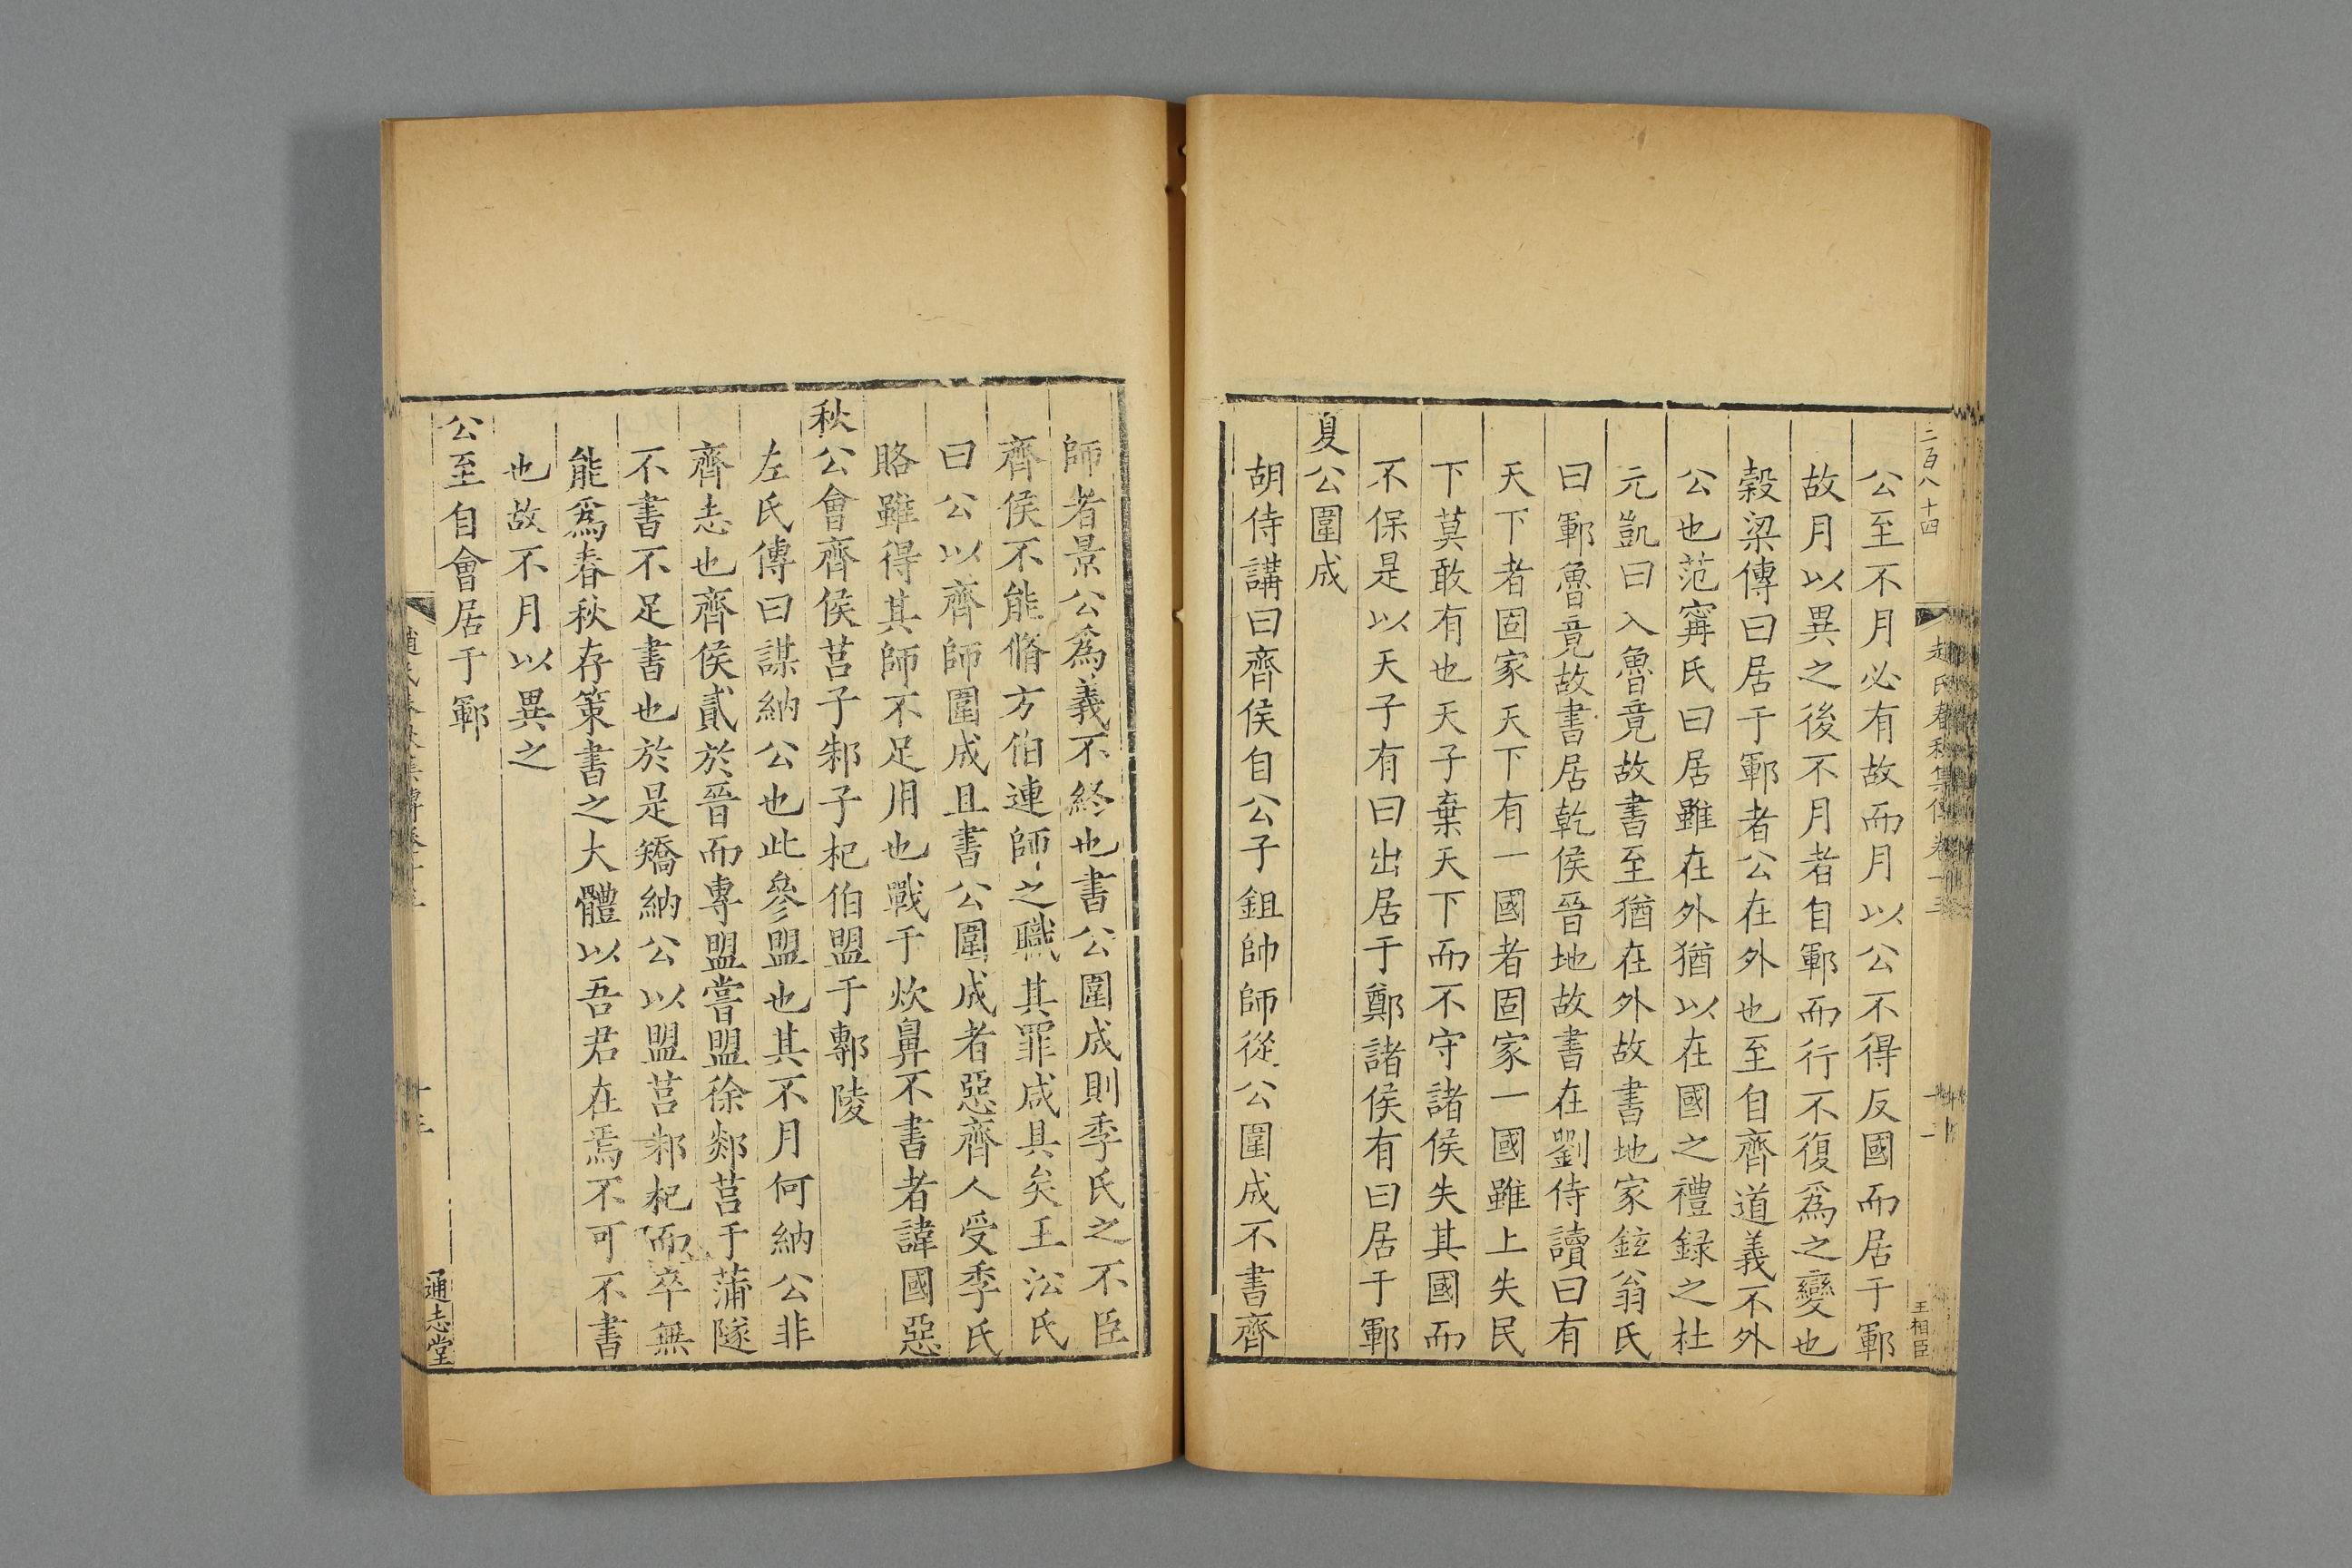 二百八十四
趙氏春秋集傳卷十三
王相臣
公至不月必有故而月以公不得反國而居于鄆
故月以異之後不月者自鄆而行不復爲之變也
穀梁傳曰居于鄆者公在外也至自齊道義不外
公也范甯氏曰居雖在外猶以在國之禮録之杜
元凱曰入魯竟故書至猶在外故書地家鉉翁氏
曰鄆魯竟故書居乾侯晉地故書在劉侍讀曰有
天下者固家天下有一國者固家一國雖上失民
下莫敢有也天子棄天下而不守諸侯失其國而
不保是以天子有曰出居于鄭諸侯有曰居于鄆
夏公圍成
胡侍講曰齊侯自公子鉏帥師從公圍成不書齊
師者景公爲義不終也書公圍成則季氏之不臣
齊侯不能脩方伯連師之職其罪咸具矣王沿氏
曰公以齊師圍成且書公圍成者惡齊人受季氏
賂雖得其師不足用也戰于炊鼻不書者諱國惡
秋公會齊侯莒子邾子杞伯盟于鄟陵
左氏傳曰謀納公也此參盟也其不月何納公非
齊志也齊侯貳於晉而專盟嘗盟徐郯莒于蒲隧
不書不足書也於是矯納公以盟莒邾杞而卒無
能爲春秋存策書之大體以吾君在焉不可不書
也故不月以異之
公至自會居于鄆
通志堂